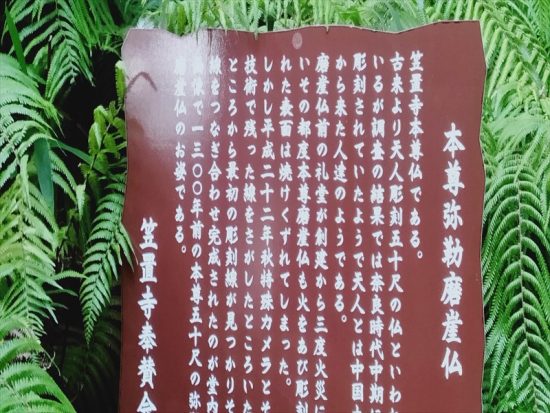 本尊弥勒磨崖仏
笠置寺本尊仏である。
古来より天人彫刻五十尺の仏といわ
いるが調査の結果では奈良時代中期
彫刻されていたようで天人とは中国
から来た人達のようである。
磨崖仏前の礼堂が創建から三度火災に
いその都度本尊磨崖仏も火をあび彫刻
れた表面は焼けくずれてしまった。
しかし平成二十二年秋特殊カメラとそ
技術で残った線をさがしたところいた
ところから最初の彫刻線が見つかりそ
線をつなぎ合わせ完成されたのが堂内
像で一三〇〇年前の本尊五十尺の弥
磨崖仏のお姿である。
笠置寺奉賛会